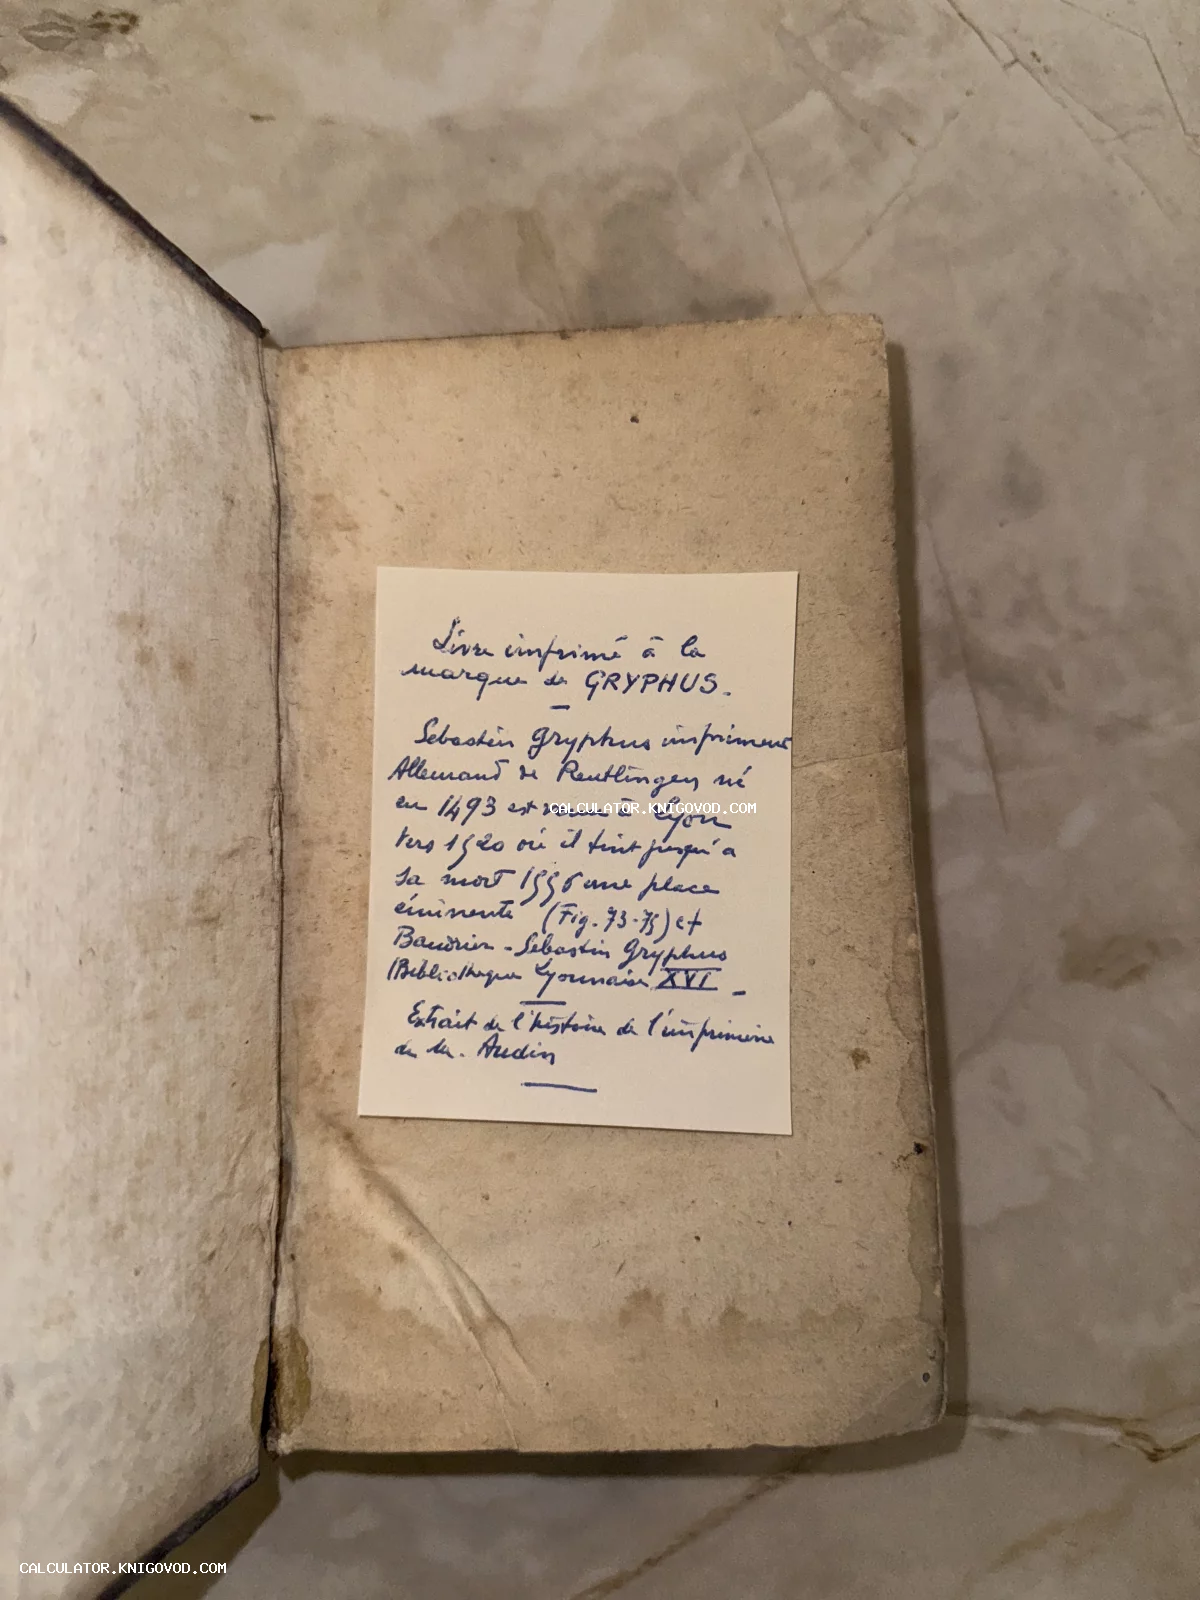 Livre imprimé à la
marque de GRYPHUS.
Sebastien Gryphus imprimeur
Allemand de Reutlingen né
en 1493 est venu à Lyon
CALCULATOR.KNIGOVOD.COM
vers 1520 où il tint jusqu'a
sa mort 1556 une place
éminente (Fig. 73-75) et
Baudrier - Sebastien Gryphus
Bibliotheque Lyonnaise XVI -
Extrait de l'histoire de l'imprimerie
de M. Audin
CALCULATOR.KNIGOVOD.COM